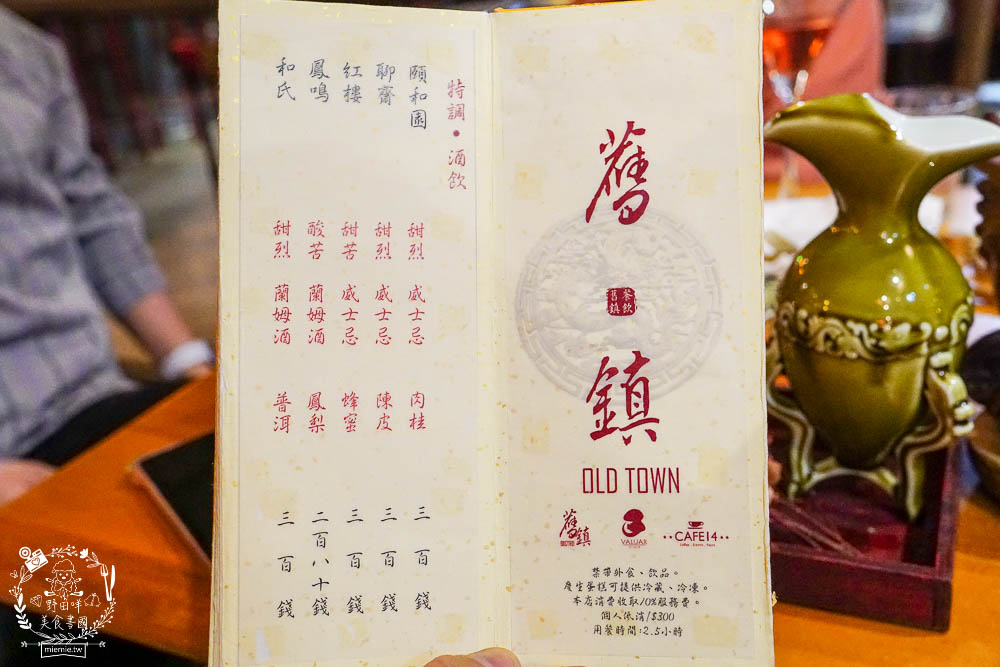 特調•酒飲
頤和園 甜烈 威士忌 肉桂 三百錢
聊齋 甜烈 威士忌 陳皮 三百錢
紅樓 甜苦 威士忌 蜂蜜 三百錢
鳳鳴 酸苦 蘭姆酒 鳳梨 二百八十錢
和氏 甜烈 蘭姆酒 普洱 三百錢
舊
餐飲
舊鎮
鎮
OLD TOWN
舊鎮
BISTRO
VALUAR
CAFE14
禁帶外食、飲品。
慶生蛋糕可提供冷藏、冷凍。
本店消費收取10%服務費。
個人低消/$300
用餐時間:2.5小時
野田咩
美食書園
miemie.tw